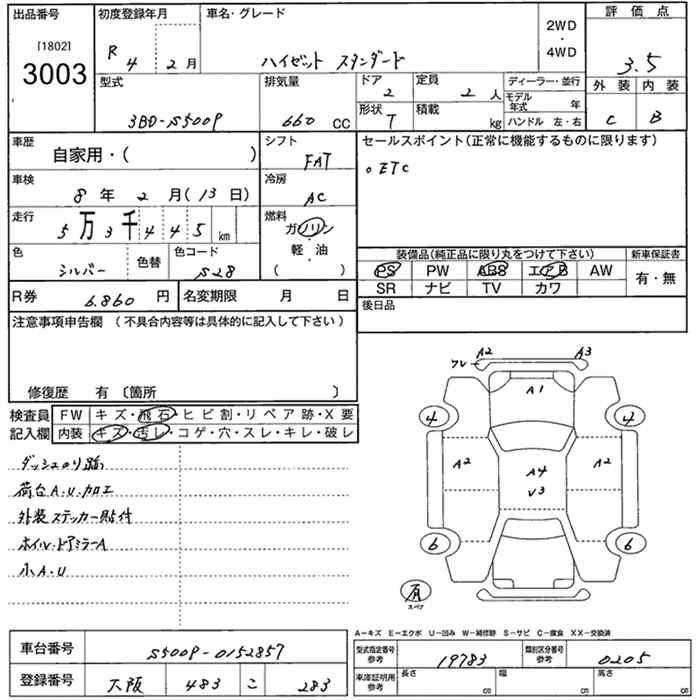 出品番号 初度登録年月 車名・グレード 2WD・4WD 評価点
[1802]
3003
R 4 2月 ハイゼット スタンダード 3.5
型式 排気量 ドア 2 定員 2人 ディーラー・並行 外装 内装
3BD-S500P 660 CC 形状 T 積載 kg モデル年式 年 C B
ハンドル 左・右
車歴 自家用・( ) シフト FAT セールスポイント(正常に機能するものに限ります)
。ETC
車検 8年 2月(13日) 冷房 AC
走行 5万3千445km 燃料 ガソリン・軽油( )
色 シルバー 色替 色コード S28
装備品(純正品に限り丸をつけて下さい) 新車保証書
PS PW ABS エアB AW 有・無
SR ナビ TV カワ
R券 6.860円 名変期限 月 日 後日品
注意事項申告欄 (不具合内容等は具体的に記入して下さい)
修復歴 有〔箇所 〕
検査員記入欄 FW キズ・飛石・ヒビ割・リペア跡・X要
内装 キズ・汚レ・コゲ・穴・スレ・キレ・破レ
ダッシュのり跡
荷台A.U.加工
外装ステッカー貼付
ホイル・ドアミラーA
小A.U
フレ A2 A3
A1
4 4
A2 A4 A2
V3
6 6
有
スペア
A-キズ E-エクボ U-凹み W-補修跡 S-サビ C-腐食 XX-交換済
車台番号 S500P-0152857
型式指定番号 参考 19783 類別区分番号 参考 0205
登録番号 大阪 483 こ 283
車庫証明用 参考 長さ cm 幅 cm 高さ cm